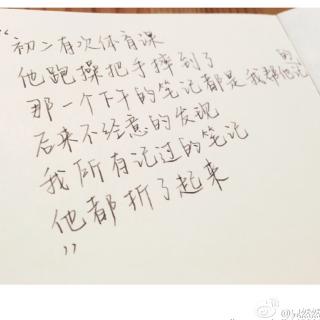 “
初二有次体育课
他跑操把手摔到了
那一个下午的笔记都是我帮他记的
后来不经意的发现
我所有记过的笔记
他都折了起来
”